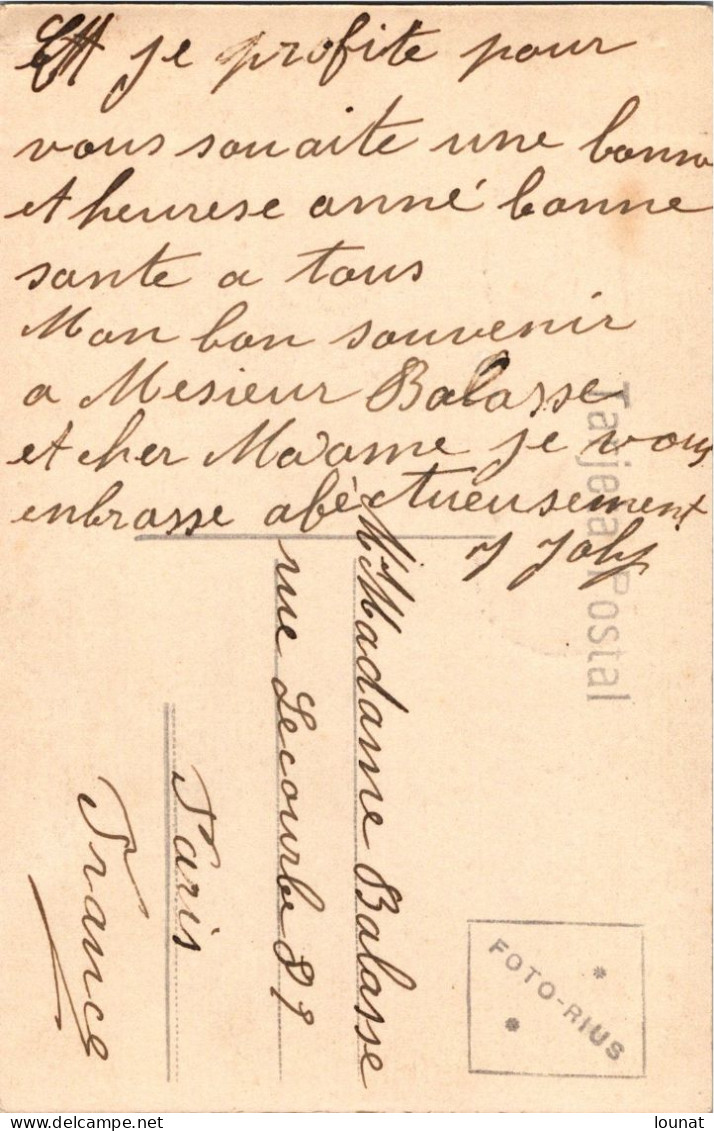 Ett je profite pour
vous souaite une bonne
et heurese anné bonne
sante a tous
Mon bon souvenir
a Mesieur Balasse
et cher Madame je vous
enbrasse abéctueusement
J Joly
Tarjeta Postal
Madame Balasse
rue Lecourbe 89
Paris
France
FOTO-RIUS
lounat